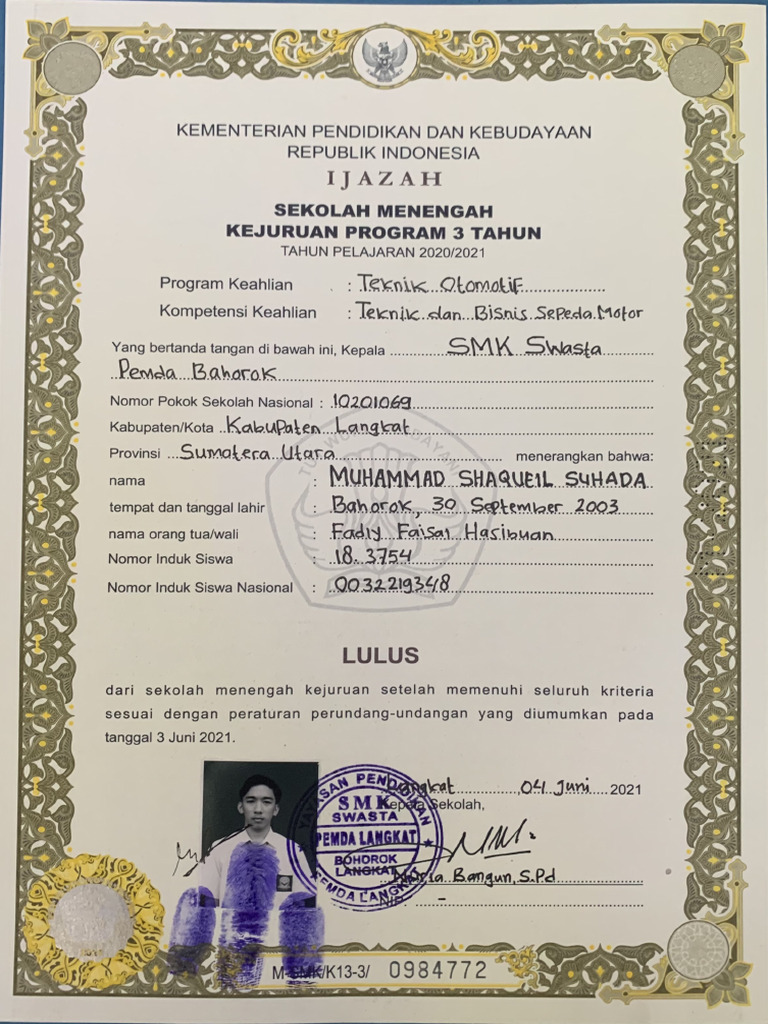 KEMENTERIAN PENDIDIKAN DAN KEBUDAYAAN
REPUBLIK INDONESIA
IJAZAH
SEKOLAH MENENGAH
KEJURUAN PROGRAM 3 TAHUN
TAHUN PELAJARAN 2020/2021
Program Keahlian : Teknik Otomotif
Kompetensi Keahlian : Teknik dan Bisnis Sepeda Motor
Yang bertanda tangan di bawah ini, Kepala SMK Swasta
Pemda Bahorok
Nomor Pokok Sekolah Nasional : 10201069
Kabupaten/Kota Kabupaten Langkat
Provinsi Sumatera Utara menerangkan bahwa:
nama : MUHAMMAD SHAQUEIL SUHADA
tempat dan tanggal lahir : Bahorok, 30 September 2003
nama orang tua/wali : Fadly Faisal Hasibuan
Nomor Induk Siswa : 18. 3754
Nomor Induk Siswa Nasional : 0032219348
LULUS
dari sekolah menengah kejuruan setelah memenuhi seluruh kriteria
sesuai dengan peraturan perundang-undangan yang diumumkan pada
tanggal 3 Juni 2021.
Langkat, 04 Juni 2021
Kepala Sekolah,
YAYASAN PENDIDIKAN
SMK
SWASTA
PEMDA LANGKAT
BOHOROK
LANGKAT
PEMDA LANGKAT
Bangun, S.Pd
NIP. -
M-SMK/K13-3/ 0984772